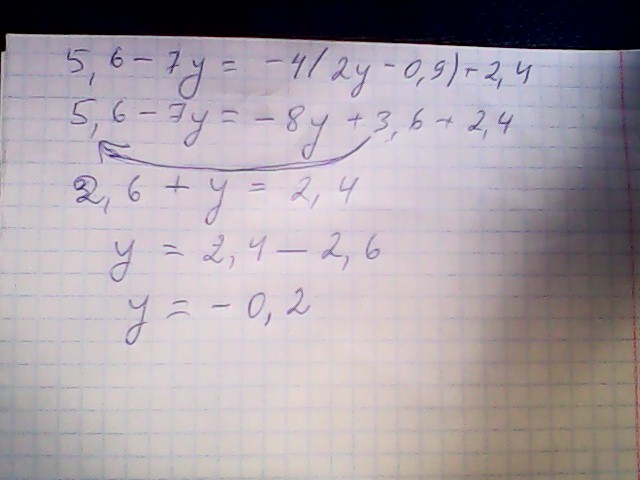 5,6 - 7y = -4(2y - 0,9) + 2,4
5,6 - 7y = -8y + 3,6 + 2,4
2,6 + y = 2,4
y = 2,4 - 2,6
y = -0,2